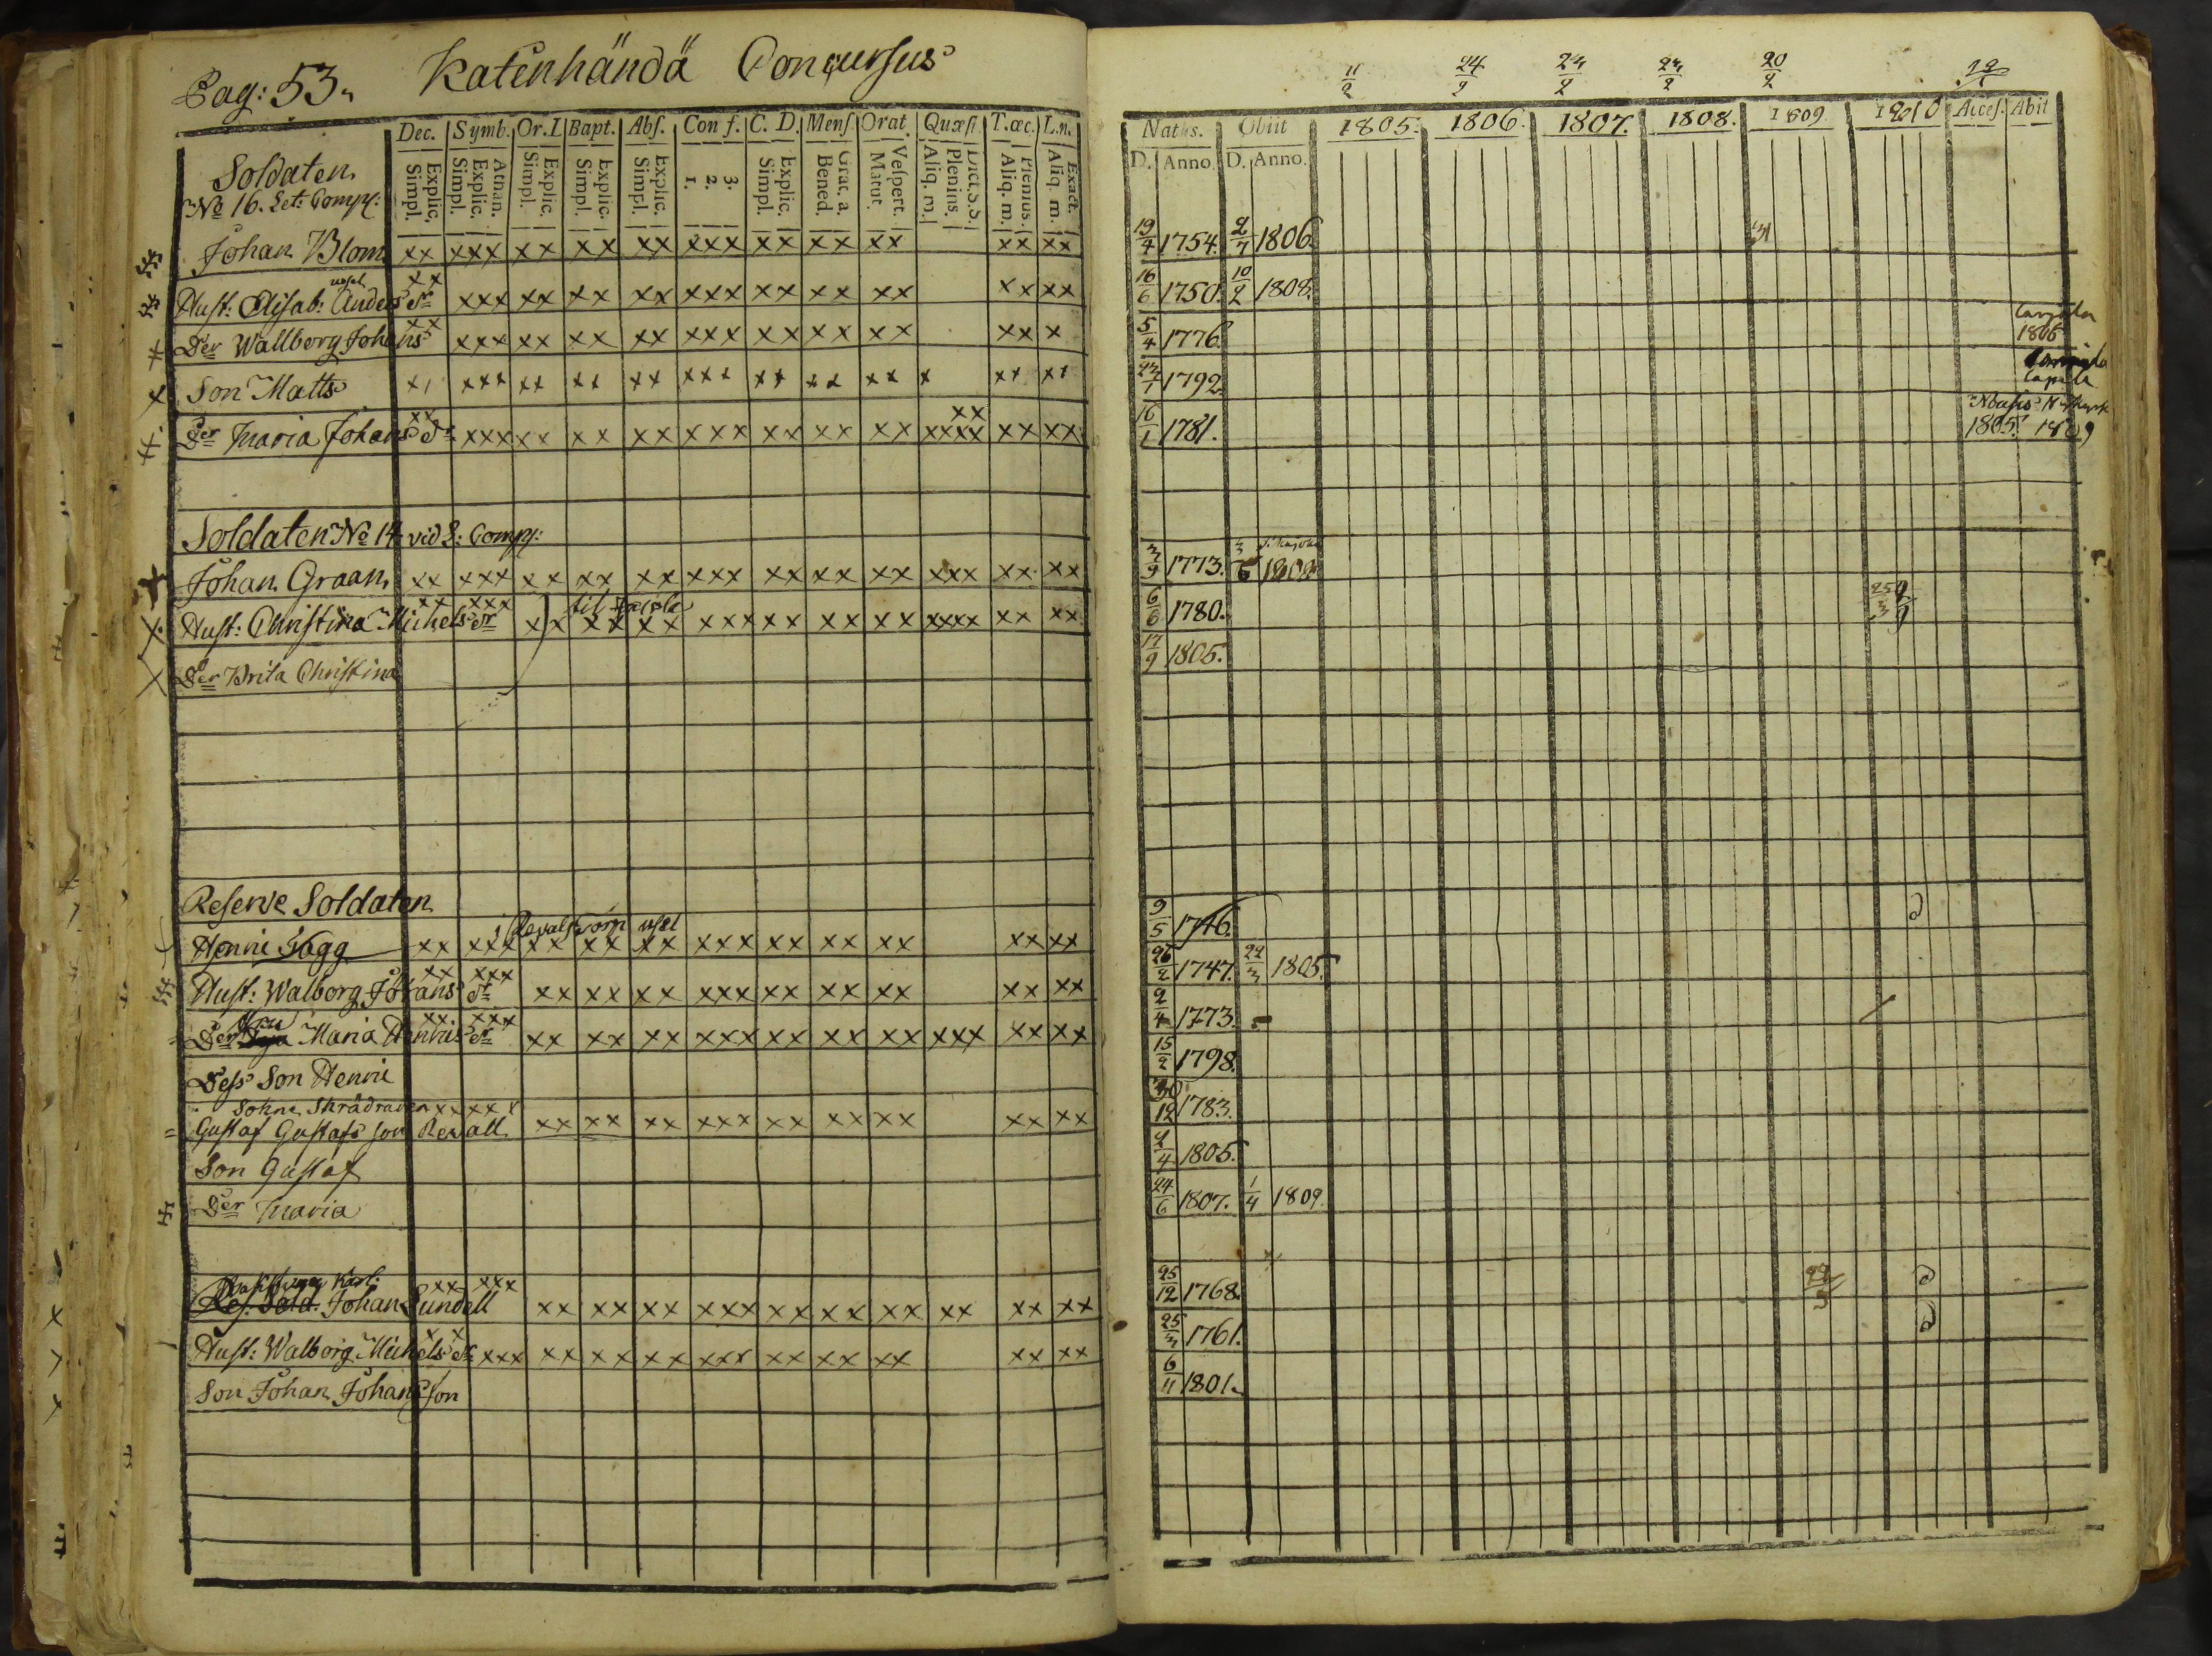 Pag: 53. Katenhändä Concursus
Dec. Symb. Or. D Bapt. Abſ. Con f. C. D. Menſ Orat. Quæſt. T. œc. L. n.
Explic. Simpl. Athan. Explic. Simpl. Explic. Simpl. Explic. Simpl. Explic. Simpl. 3. 2. 1. Explic. Simpl. Grat. a. Bened. Veſpert. Matut. Dict. S. S. Plenius. Aliq. m. Plenius. Aliq. m. Exact. Aliq. m.
Soldaten
No 16. Let: Comp:
Johan Blom xx xxx xx xx xx xxx xx xx xx xx xx
Hust: Elisab: Anders dr xx xxx xx xx xx xxx xx xx xx xx xx
Der Wallborg Johans xx xxx xx xx xx xxx xx xx xx xx x
Son Matts
Der Maria Johans dr xx xxx xx xx xx xxx xx xx xx xx xxxx xx xx
Soldaten No 14 vid L: Comp:
Johan Graan xx xxx xx xx xx xxx xx xx xx xxx xx xx
til
Hust: Christina Michels dr xx xxx xx xx xx xxx xx xx xx xxxx xx xx
Der Brita Christina
Reserve Soldaten
Henric Sagg xx xxx xx xx xx xxx xx xx xx xx xx
Hust: Walborg Johans dr xx xxx xx xx xx xxx xx xx xx xx xx
Der Maria Henrics dr xx xxx xx xx xx xxx xx xx xx xxx xx xx
Dess Son Henric
Sohne Skrädraren xx xxx
Gustaf Gustafs son Rewall xx xx xx xxx xx xx xx xx xx
Son Gustaf
Der Maria
Res. Sold. Johan Lundell xx xxx xx xx xx xxx xx xx xx xx xx xx
Hust: Walborg Michels dr xx xxx xx xx xx xxx xx xx xx xx xx
Son Johan Johansson
11/2 24/2 23/2 23/2 20/2 12/1
Natus. Obiit 1805. 1806. 1807. 1808. 1809 1810 Acceſ. Abit
D. Anno. D. Anno.
19/4 1754. 2/7 1806.
16/6 1750. 10/2 1808.
5/4 1776. 1806
23/7 1792.
16/1 1781. 1805. 1809
3/9 1773. 3/6 1808
6/6 1780.
17/9 1805.
9/5 1746.
26/2 1747. 22/3 1805.
2/4 1773.
15/2 1798.
30/12 1783.
2/4 1805.
24/6 1807. 1/4 1809.
25/12 1768.
25/3 1761.
6/11 1801.